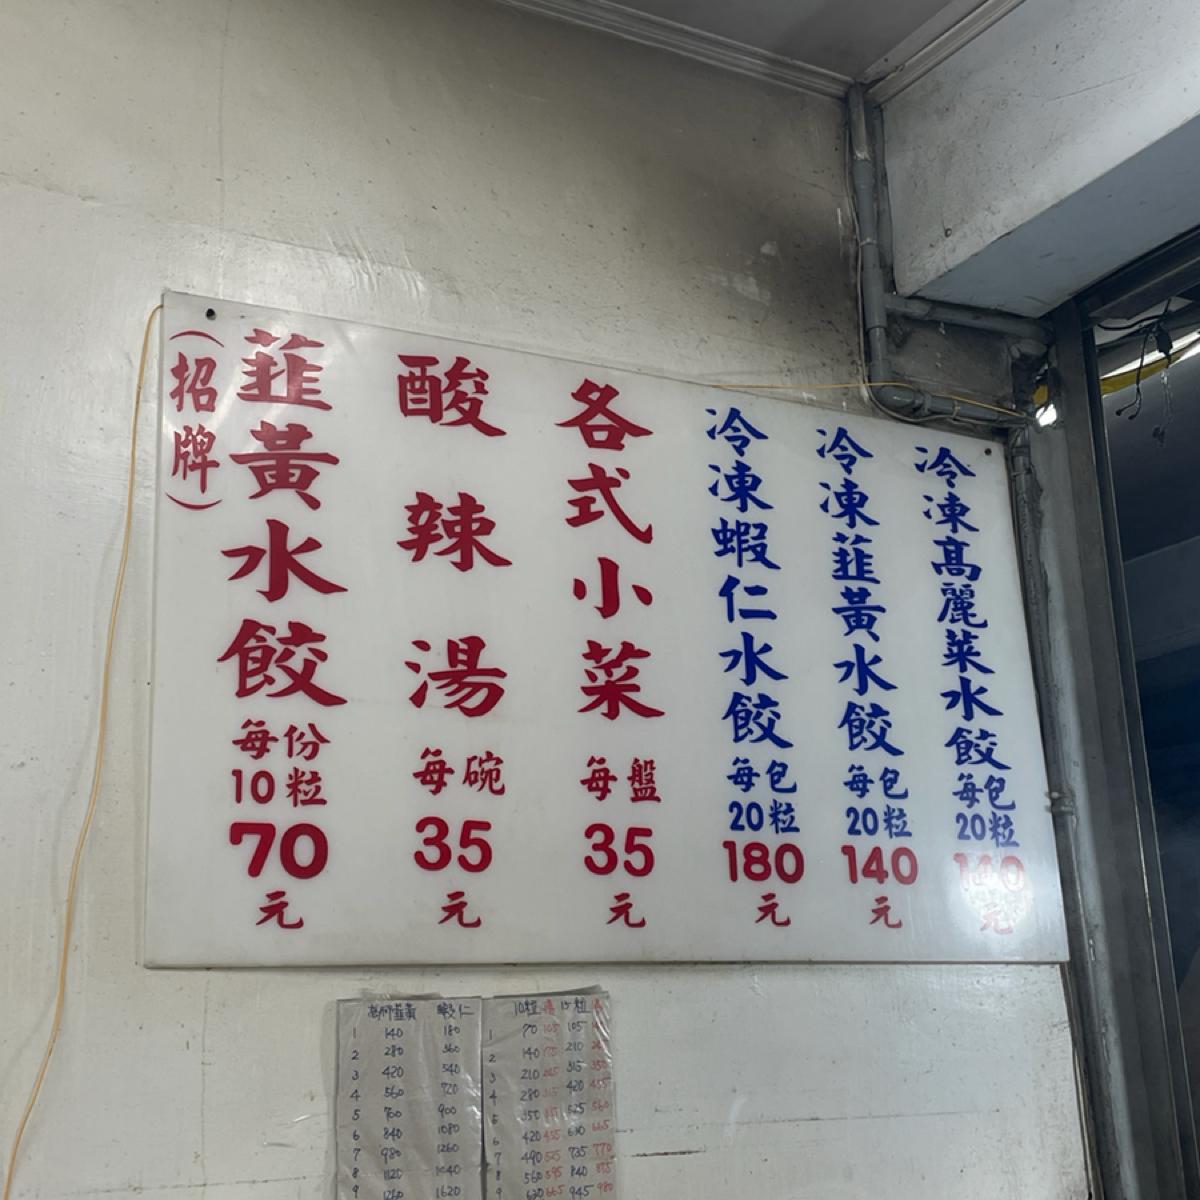 (招牌)
韮黃水餃
每份
10粒
70
元
酸辣湯
每碗
35
元
各式小菜
每盤
35
元
冷凍蝦仁水餃
每包
20粒
180
元
冷凍韮黃水餃
每包
20粒
140
元
冷凍高麗菜水餃
每包
20粒
140
元
蝦仁
1 140 180
2 280 360
3 420 540
4 560 720
5 700 900
6 840 1080
7 980 1260
8 1120 1440
9 1260 1620
10粒 湯 15粒
1 70 105 105
2 140 210
3 210 315 350
4 280 315 420 455
5 350 525 560
6 420 455 630 665
7 490 525 735 770
8 560 595 840 875
9 630 665 945 980